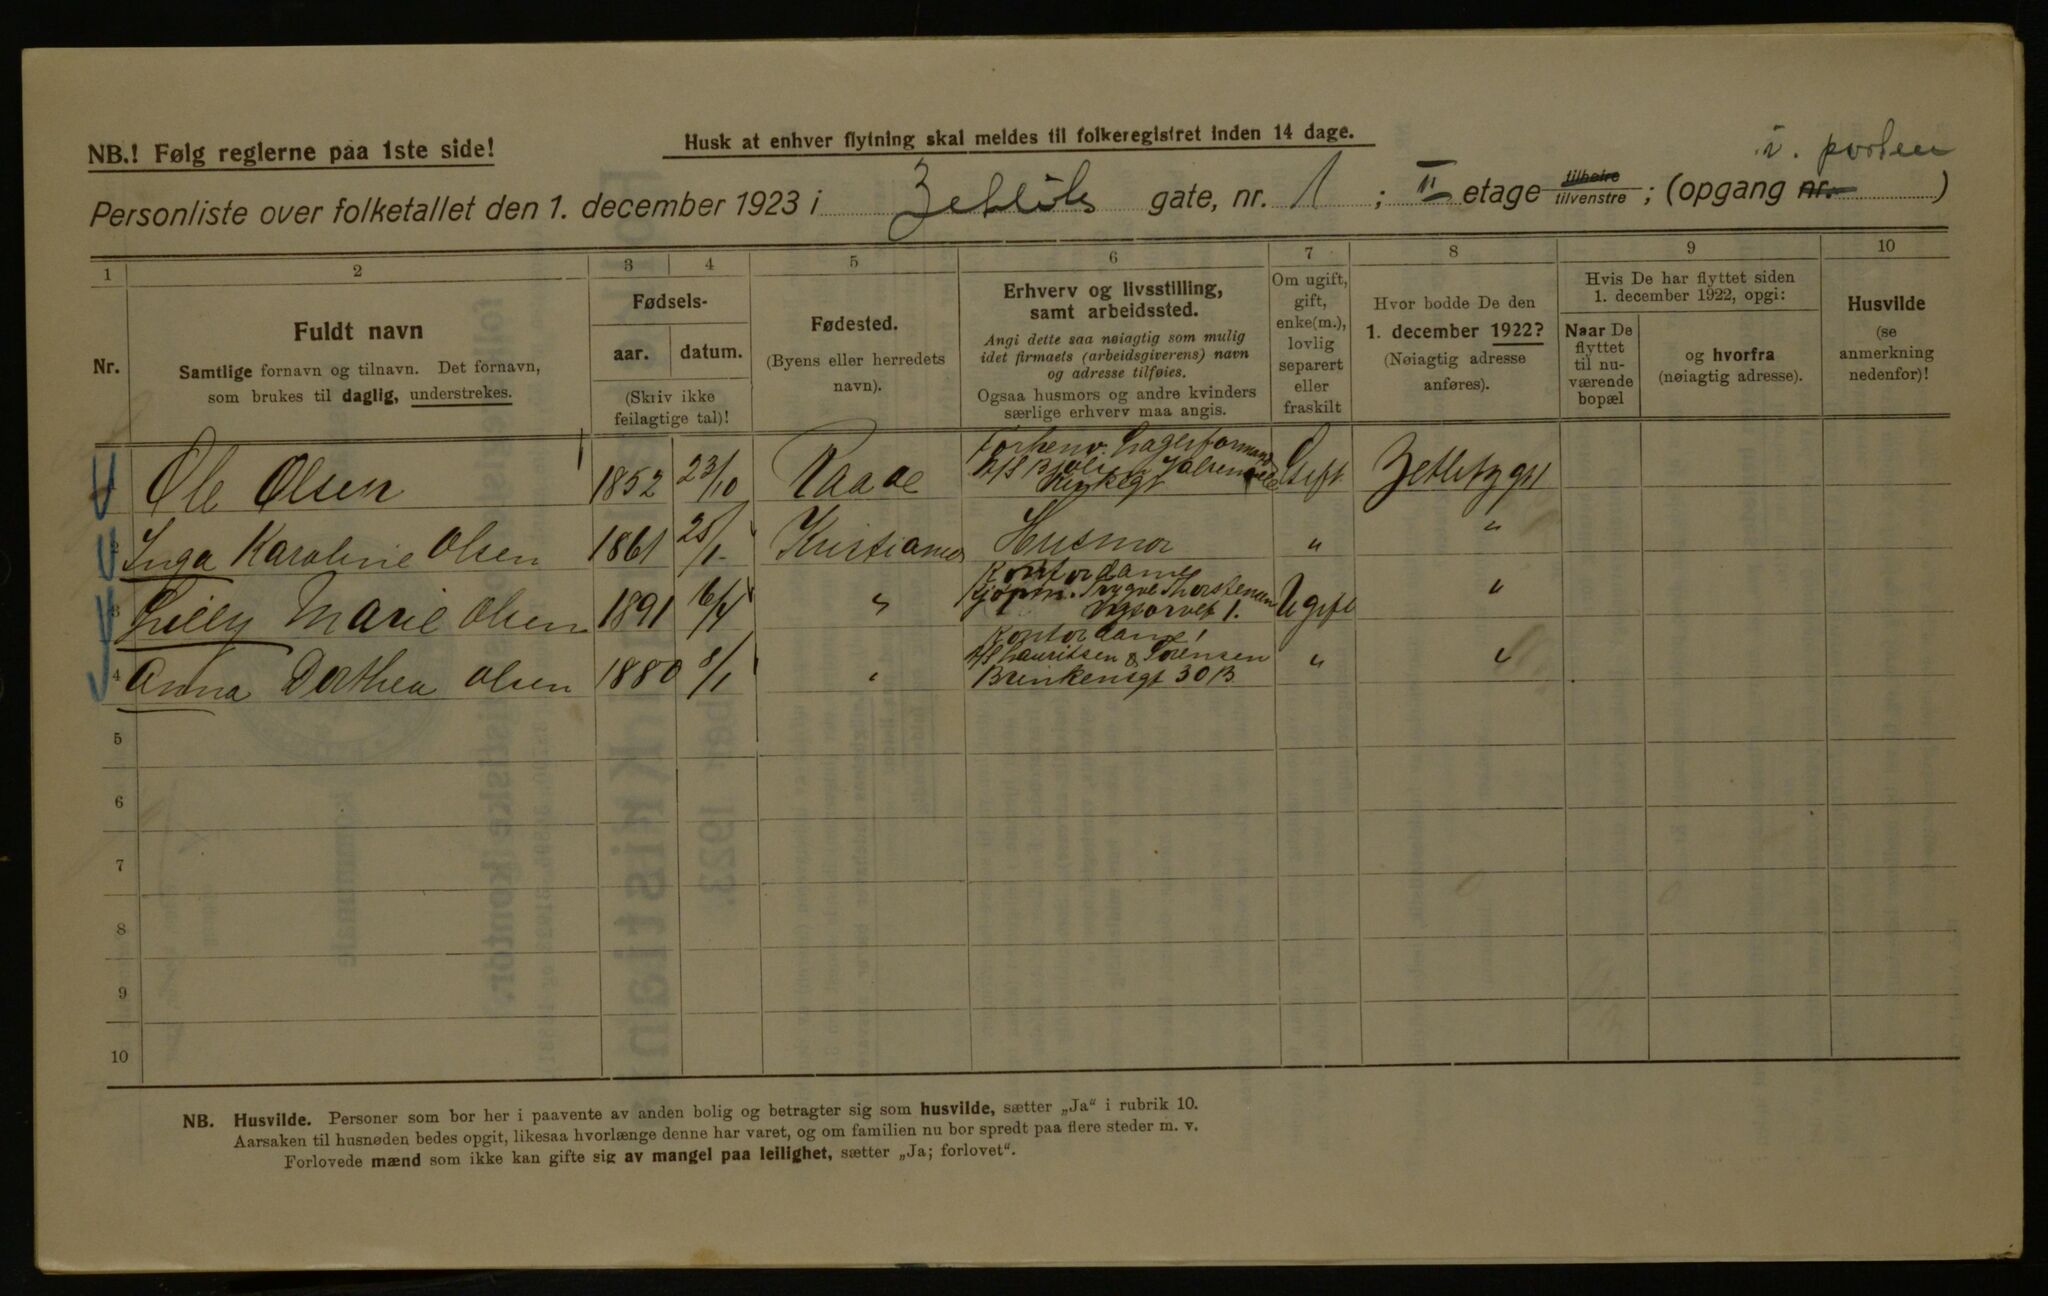 NB.! Følg reglerne paa 1ste side!
Husk at enhver flytning skal meldes til folkeregistret inden 14 dage.
i. porten
Personliste over folketallet den 1. december 1923 i gate, nr. 1 ; II etage tilhøire tilvenstre ; (opgang nr. )
1 2 3 4 5 6 7 8 9 10
Nr.
Fuldt navn
Samtlige fornavn og tilnavn. Det fornavn,
som brukes til daglig, understrekes.
Fødsels-
aar. datum.
(Skriv ikke
feilagtige tal)!
Fødested.
(Byens eller herredets
navn).
Erhverv og livsstilling,
samt arbeidssted.
Angi dette saa nøiagtig som mulig
idet firmaets (arbeidsgiverens) navn
og adresse tilføies.
Ogsaa husmors og andre kvinders
særlige erhverv maa angis.
Om ugift,
gift,
enke(m.),
lovlig
separert
eller
fraskilt
Hvor bodde De den
1. december 1922?
(Nøiagtig adresse
anføres).
Hvis De har flyttet siden
1. december 1922, opgi:
Naar De
flyttet
til nu-
værende
bopæl
og hvorfra
(nøiagtig adresse).
Husvilde
(se
anmerkning
nedenfor)!
Ole Olsen 1852 23/10 Raade Forhenv. Lagerformand Kirkegt Gift
2 Inga Karoline Olsen 1861 25/1 Kristiania Husmor " "
3 Lilly Marie Olsen 1891 16/4 " Kontordame
Kjøpm. Trygve Thorstensen
1. Ugift "
4 Anna Dorthea Olsen 1880 8/1 " Kontordame
A/S Lauritsen & Sørensen
Brinkensgt 30 B " "
5
6
7
8
9
10
NB. Husvilde. Personer som bor her i paavente av anden bolig og betragter sig som husvilde, sætter „Ja“ i rubrik 10.
Aarsaken til husnøden bedes opgit, likesaa hvorlænge denne har varet, og om familien nu bor spredt paa flere steder m. v.
Forlovede mænd som ikke kan gifte sig av mangel paa leilighet, sætter „Ja; forlovet“.